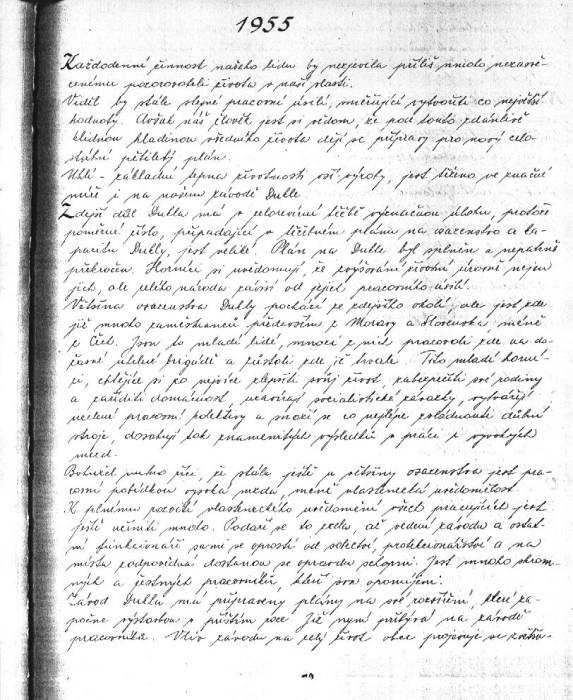 1955
Každodenní činnost našeho lidu by nezjevila příliš mnoho nezasvě-
cenému pozorovateli života v naší vlasti.
Viděl by stále stejné pracovní úsilí, směřující vytvořiti co největší
hodnoty. Avšak náš člověk jest si vědom, že pod touto zdánlivě
klidnou hladinou všedního života dějí se přípravy pro nový celo-
státní pětiletý plán.
Uhlí - základní tepna životnosti vší výroby, jest těženo ve značné
míře i na našem závodě Dukla.
Zdejší důl Dukla má v celorevírní těžbě význačnou úlohu, protože
poměrné číslo, připadající v těžebním plánu na osazenstvo a ka-
pacitu Dukly, jest veliké. Plán na Dukle byl splněn a nepatrně
překročen. Horníci si uvědomují, že zvyšování životní úrovně nejen
jich, ale celého národa závisí od jejich pracovního úsilí.
Většina osazenstva Dukly pochází ze zdejšího okolí, ale jest zde
již mnoho zaměstnanců především z Moravy a Slovenska, méně
z Čech. Jsou to mladí lidé, mnozí z nich pracovali zde na do-
časné uhelné brigádě a zůstali zde již trvale. Tito mladí horní-
ci, chtějíce si co nejvíce zlepšiti svůj život, zabezpečiti své rodiny
a zařídit domácnost, uzavírají socialistické závazky, vytvářejí
ucelené pracovní kolektivy a snaží se co nejlépe zvládnouti důlní
stroje, dosahují tak znamenitých výsledků v práci i vysokých
mezd.
Bohužel nutno říci, že stále ještě u většiny osazenstva jest pra-
covní pobídkou vysoká mzda, méně vlastenecká uvědomělost.
K plnému rozvití vlasteneckého uvědomění všech pracujících jest
ještě učiniti mnoho. Podaří se to zcela, až vedení závodu a ostat-
ní funkcionáři sami se oprostí od sobectví, protekcionářství a na
místa zodpovědná dostanou se opravdu schopní. Jest mnoho skrom-
ných a čestných pracovníků, kteří jsou opomíjeni.
Závod Dukla má připraveny plány na své rozšíření, které za-
počne výstavbou v příštím roce. Již nyní přibývá na závodě
pracovníků. Vliv závodu na celý život obce projevuje se